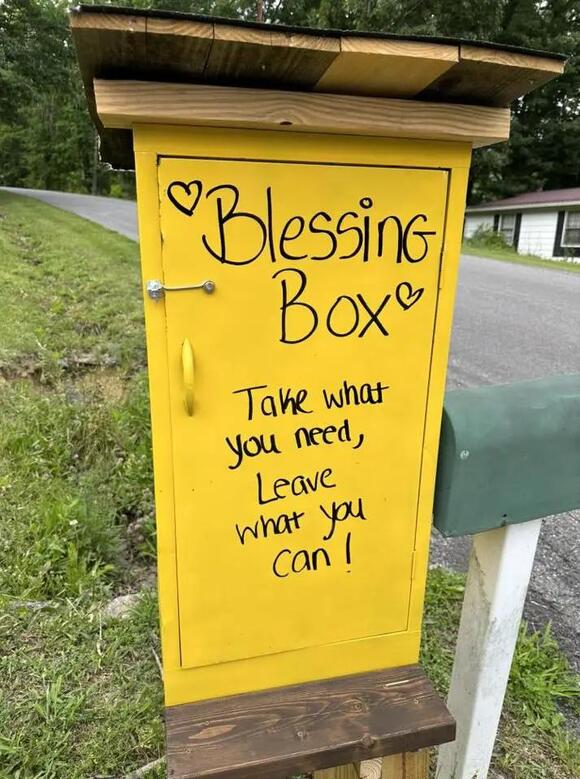 ♡Blessing
Box♡
Take what
you need,
Leave
what you
can!